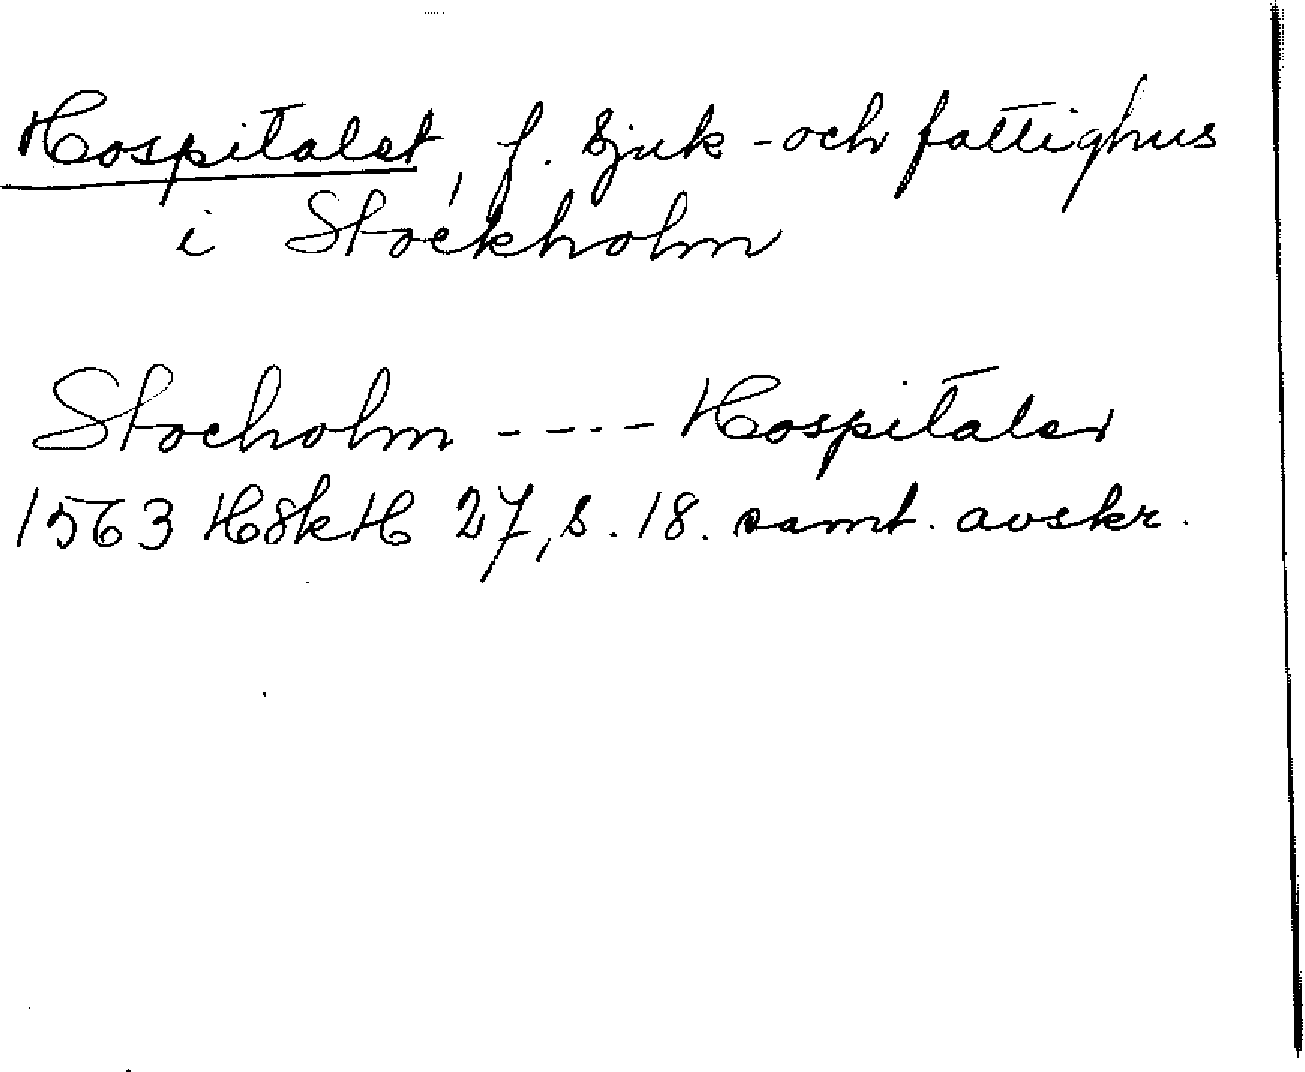 Hospitalet, f. sjuk- och fattighus
i Stockholm
Stocholm ---- Hospitalet
1563 HSkH 27, s. 18. samt. avskr.